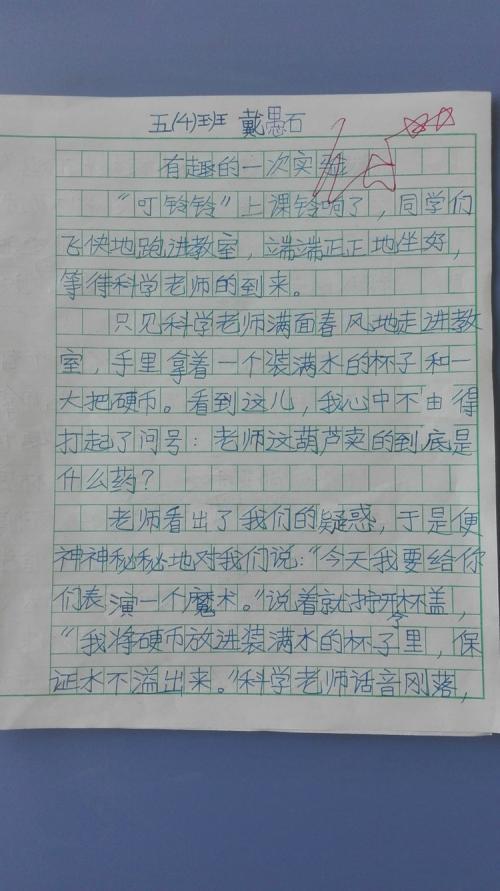 五(4)班 戴愚石
有趣的一次实验
“叮铃铃”上课铃响了，同学们
飞快地跑进教室，端端正正地坐好，
等待科学老师的到来。
只见科学老师满面春风地走进教
室，手里拿着一个装满水的杯子和一
大把硬币。看到这儿，我心中不由得
打起了问号：老师这葫芦卖的到底是
什么药？
老师看出了我们的疑惑，于是便
神神秘秘地对我们说：“今天我要给你
们表演一个魔术。”说着就拧开杯盖，
“我将硬币放进装满水的杯子里，保
证水不溢出来。”科学老师话音刚落，